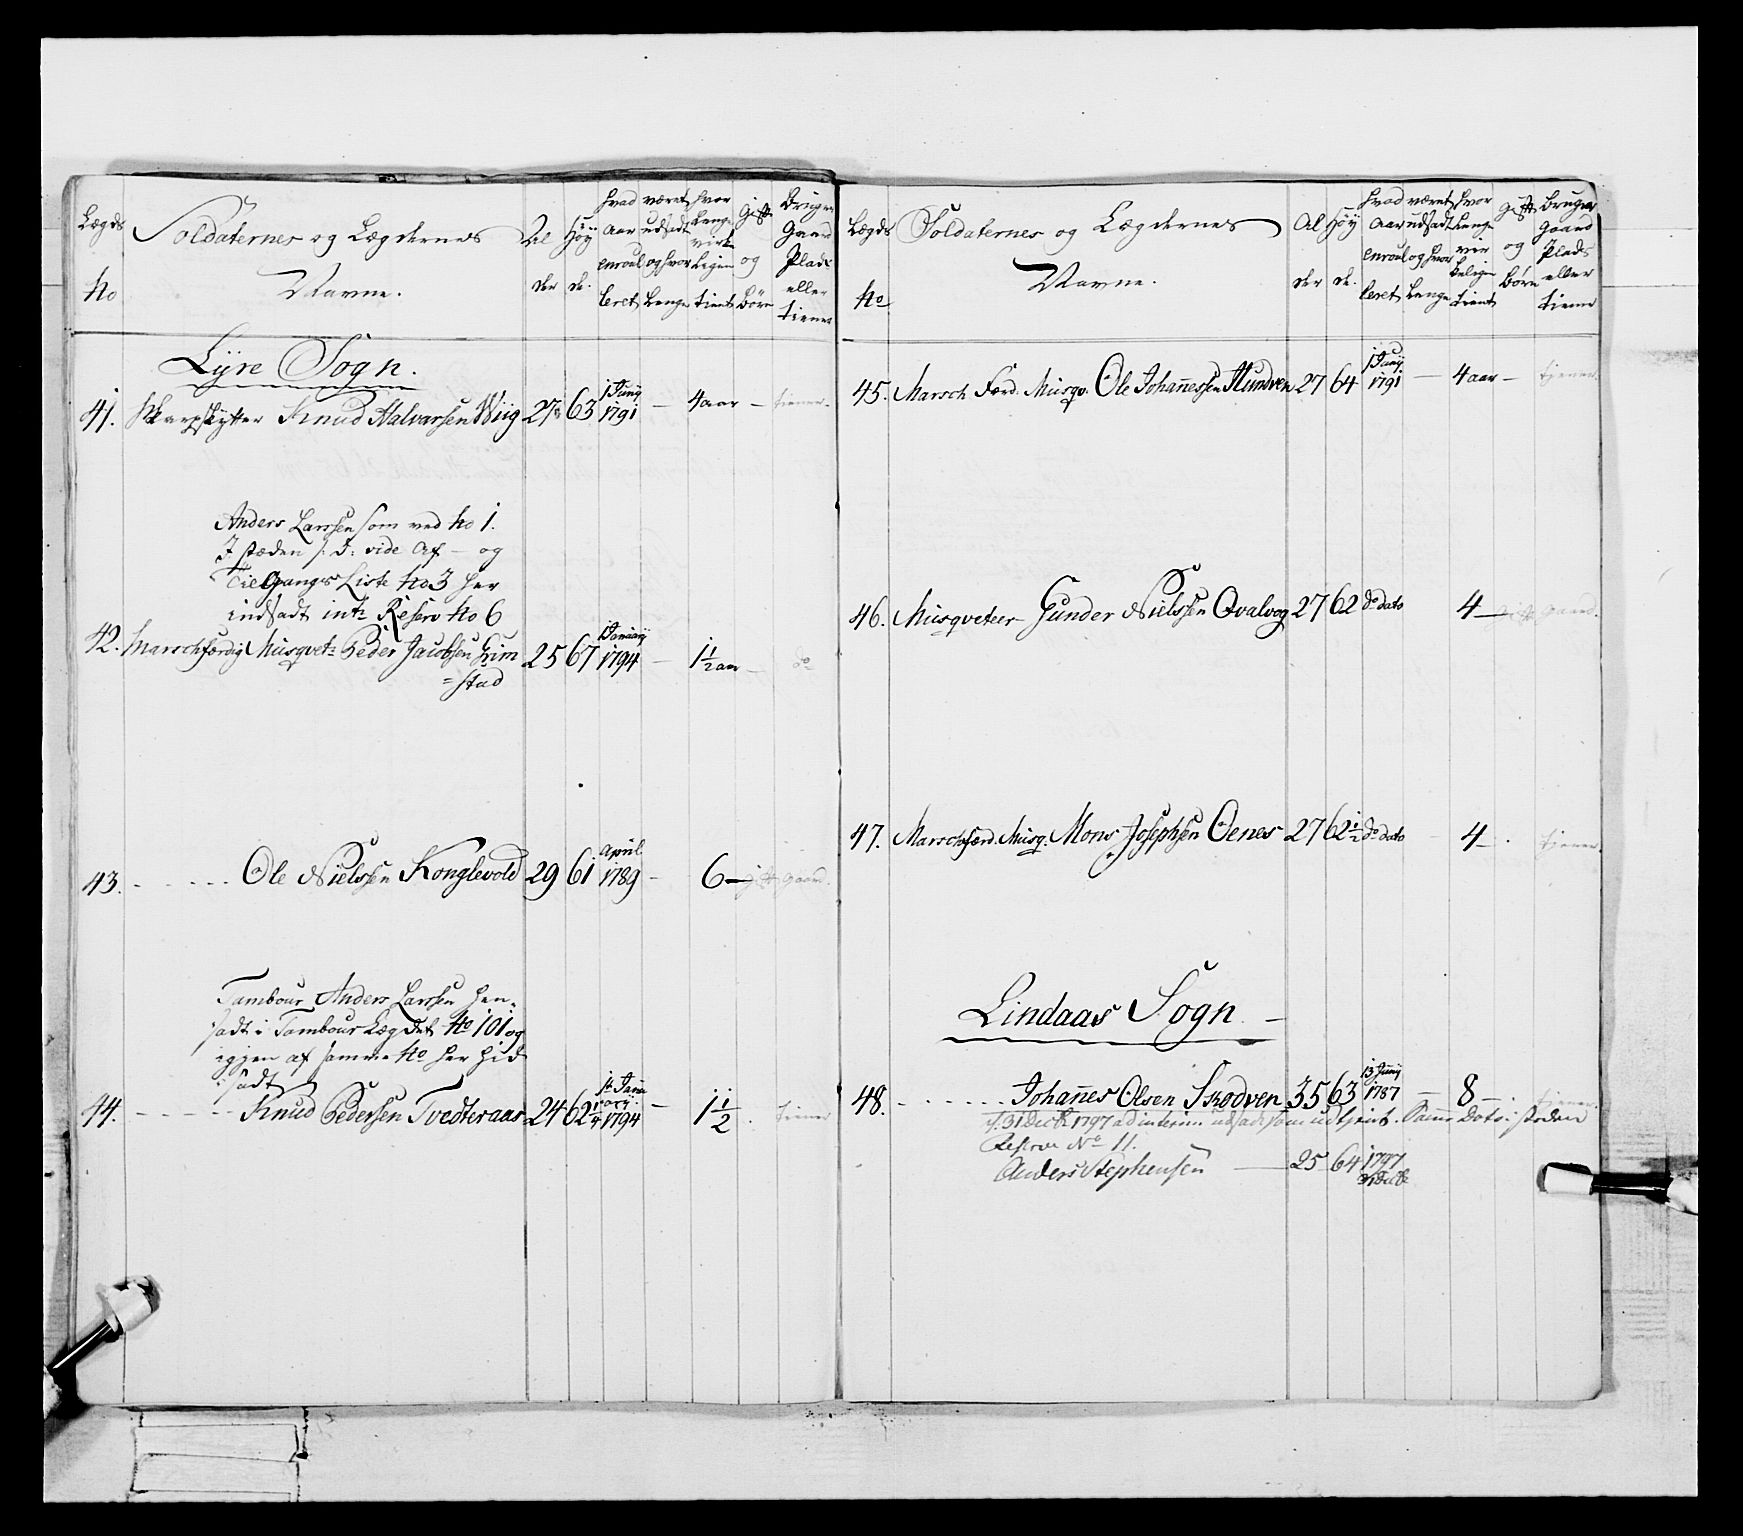 Lægds
No
Soldaternes og Lægdernes
Navne.
Al
der
Høy
de.
Hvad
Aar
enroul
leret
været
udsadt
og hvor
Lenge
hvor
Lenge
virk
Ligen
tient
Gift
og
Børn
Bruger
Gaard
Plads
eller
tiener
Lyre Sogn.
41. Skarpskytter Knud Halvarsen Wiig 27 63 1 Junij 1791 — 4 aar — tiener
Anders Larssen som ved No 1.
I stæden s: D: vide Af — og
Til Gangs Liste No 3 her
indsadt intr Reserv No 6
42. Marschfærdig Musqvet: Peder Jacobsen Grim 25 67 1 Januarij 1794 — 1 1/2 aar — do
=stad
43. - - - - - Ole Nielssen Konglevold 29 61 April 1789 — 6 — gift Gaard.
Tambour Anders Larssen hen-
sadt i Tambour Lægdet No 101 og
igjen af samme No her hid
sadt
44. - - - - - Knud Pedersen Tvedteraas 24 62 1/4 1 Januarij 1794 — 1 1/2 . tiener
Lægds
No
Soldaternes og Lægdernes
Navne.
Al
der
Høy
de.
Hvad
Aar
enroul
leret
været
udsadt
og hvor
Lenge
hvor
Lenge
vir
keligen
tient
Gift
og
Børn
Bruger
Gaard
Plads
eller
tiener
45. Marsch Færd. Musqv. Ole Johannessen Mundven 27 64 1 Junij 1791 — 4 aar — tjener
46. Musqveteer Gunder Nielssen Qvalvog 27 62 do dato 4 — gift gaard.
47. Marschfærd. Musq. Mons Josephsen Oenes 27 62 1/2 do dato — 4 — . tiener
Lindaas Sogn —
48. - - - - - Johannes Olsen Skodven 35 63 13 Junij 1787 — 8 — . tiener.
d. 31 Decb 1797 ad interim udsadt som udtjent. Samme Dato i stæden
Reserve No 11.
Anders Stephensen — 25 64 1797
31 Decb